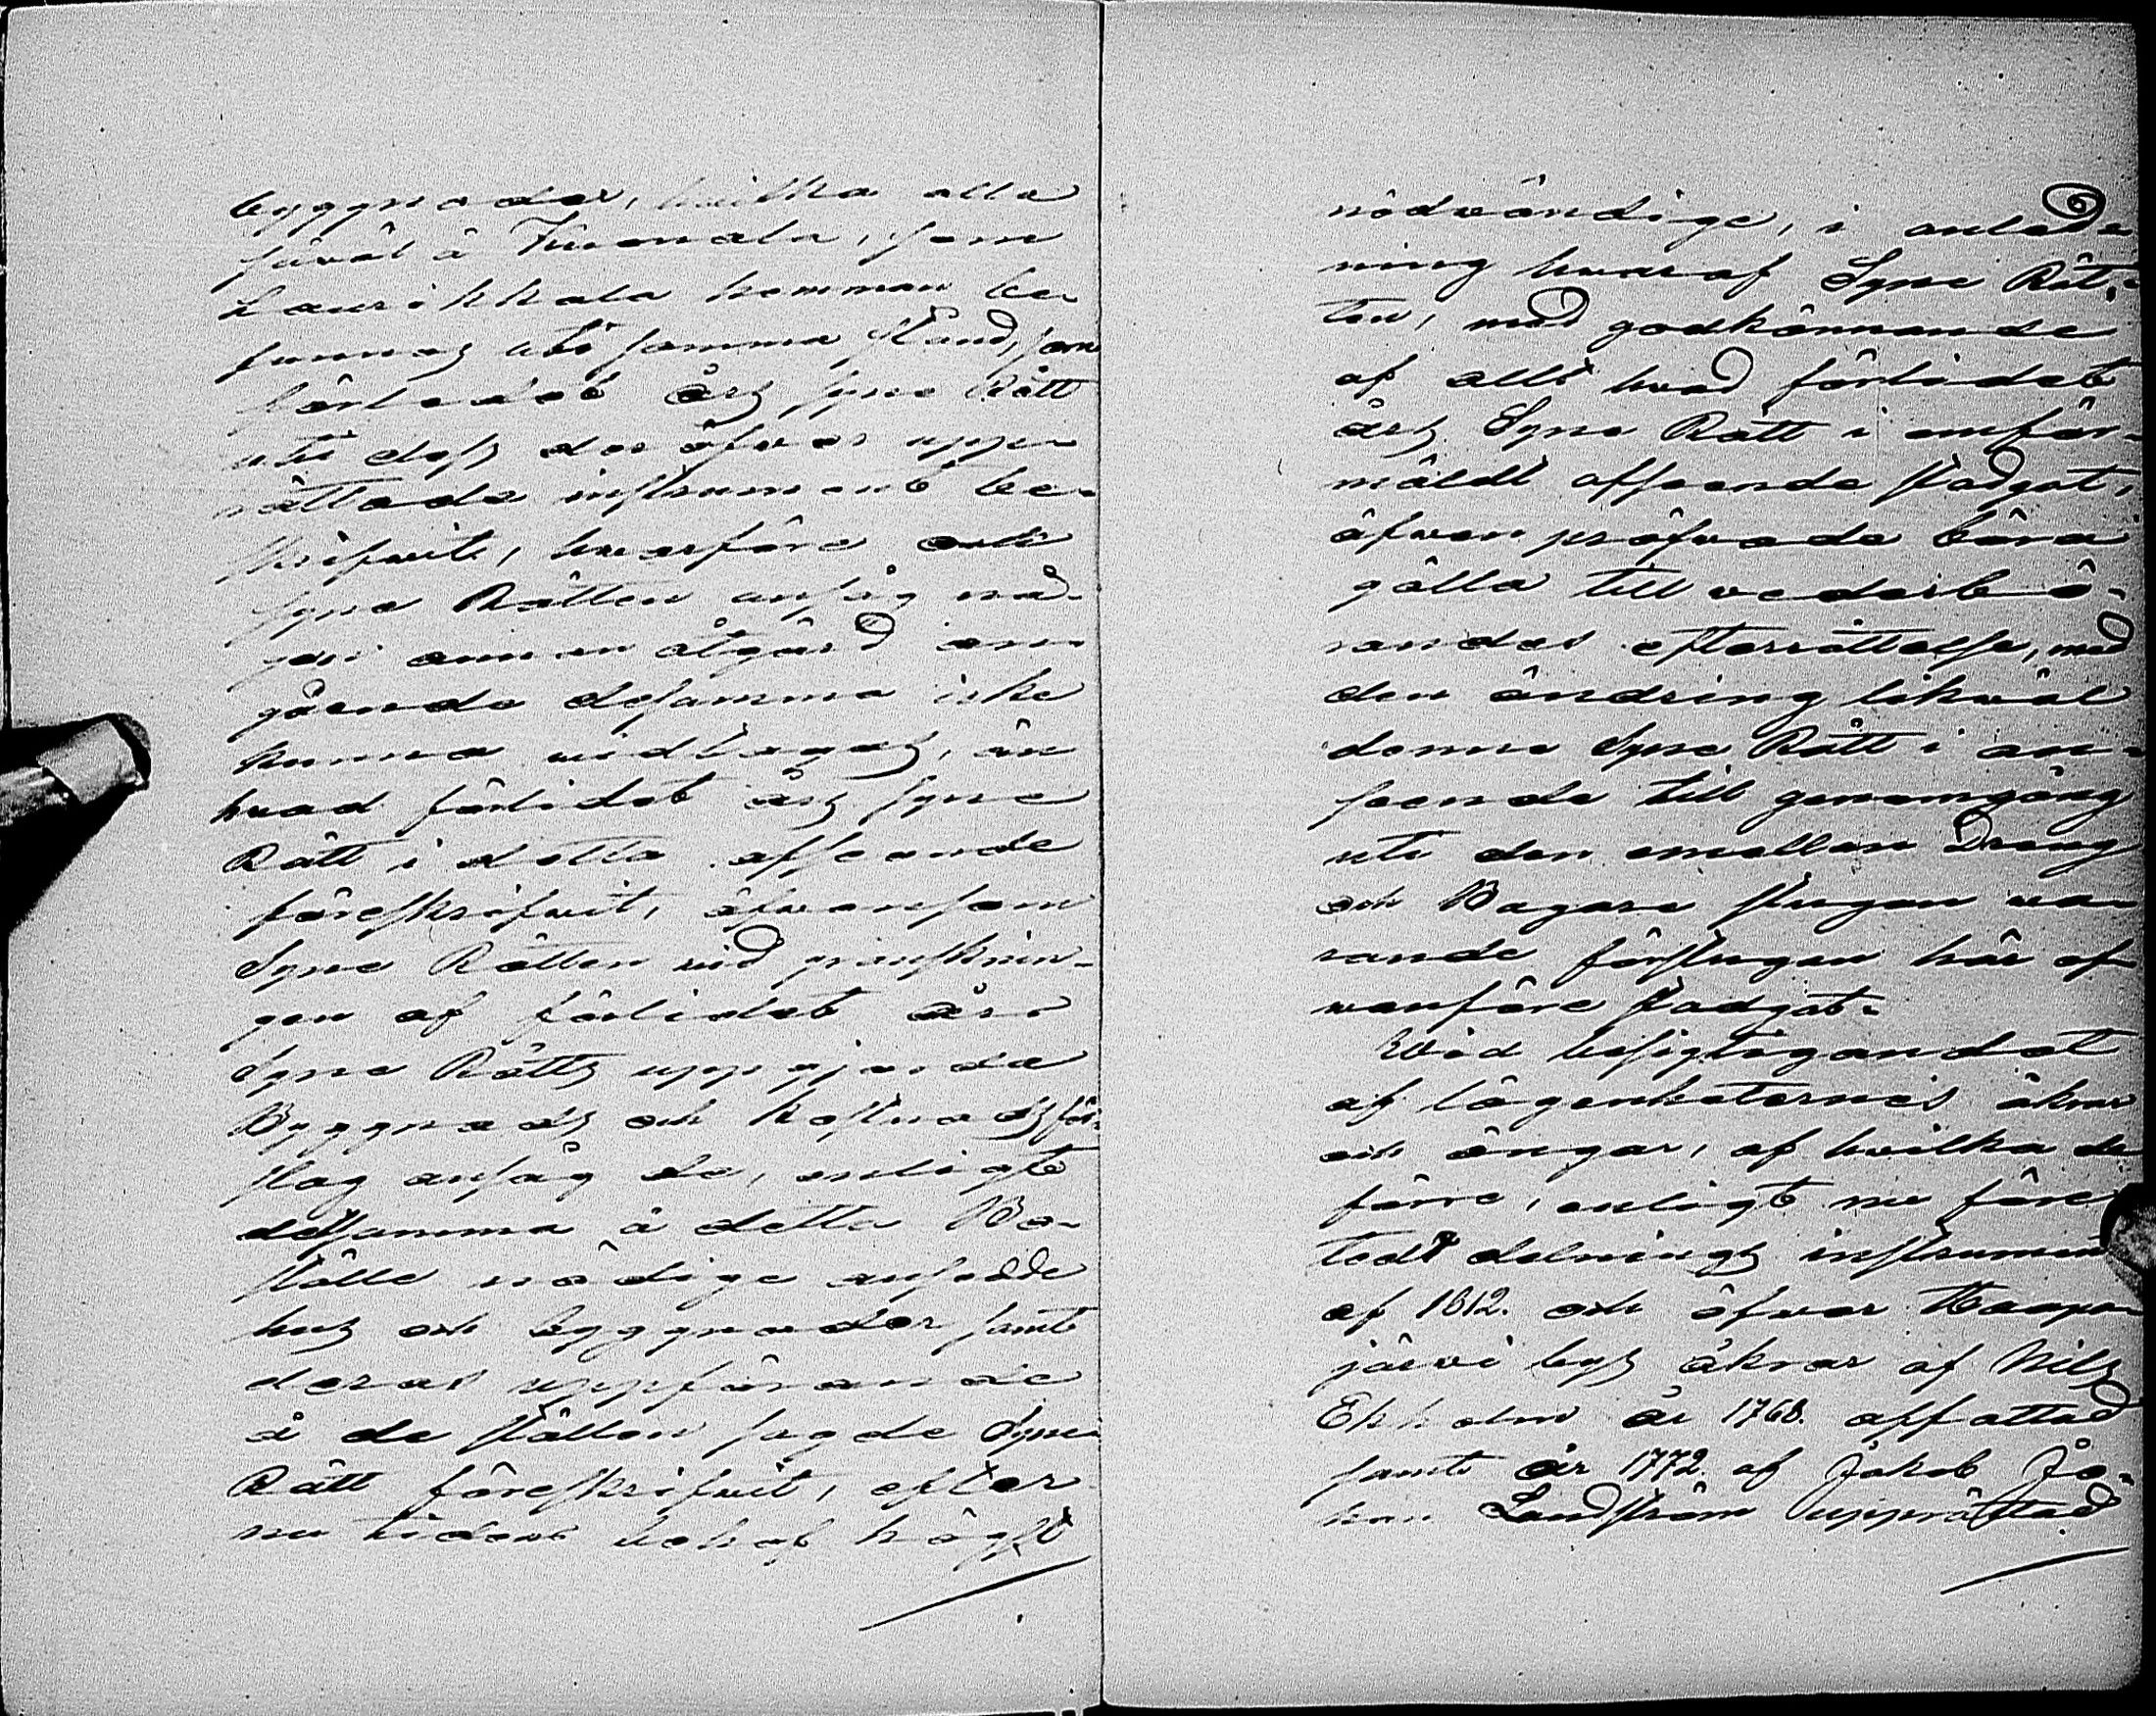 byggnader, hvilka alla
såväl å Tuomala, som
Laurikkala hemman be-
funnos uti samma stånd, som
förledet års syne Rätt
uti dess der öfver upp-
rättade instrument be-
skrifvit, hvarföre ock
syne Rätten ansåg nå-
gon annan åtgärd an-
gående desamma icke
kunna vidtagas, än
hvad förlidet års syne
Rätt i detta afseende
föreskrifvit, äfvensom
Syne Rätten vid gransknin-
gen af förlidet års
Syne Rätts uppgjorda
Byggnads och kostnads för-
slag ansåg de, enligt
detsamma å detta Bo-
ställe nödige ansedde
hus och byggnader samt
deras uppförande
å de ställen sagde Syne
Rätt föreskrifvit, efter
nu tidens behof högst
nödvändige, i anled-
ning hvaraf Syne Rät-
ten, med godkännande
af allt hvad förlidet
års Syne Rätt i omför-
mäldt afseende stadgat,
äfven pröfvade böra
gälla till vederbö-
randes efterrättelse, med
den ändring likväl
denne Syne Rätt i an-
seende till genomgång
uti den emellan Dräng
och Bagare stugan va-
rande förstugan här of-
vanföre stadgat.
Wid besigtigandet
af lägenheternes åkrar
och ängar, af hvilka de
förre, enligt nu före-
tedt delnings instrument
af 1812. och öfver Haapa-
järvi bys åkrar af Nils
Ekholm år 1768. affattad
samt år 1772. af Jakob Jo-
han Landström upprättad